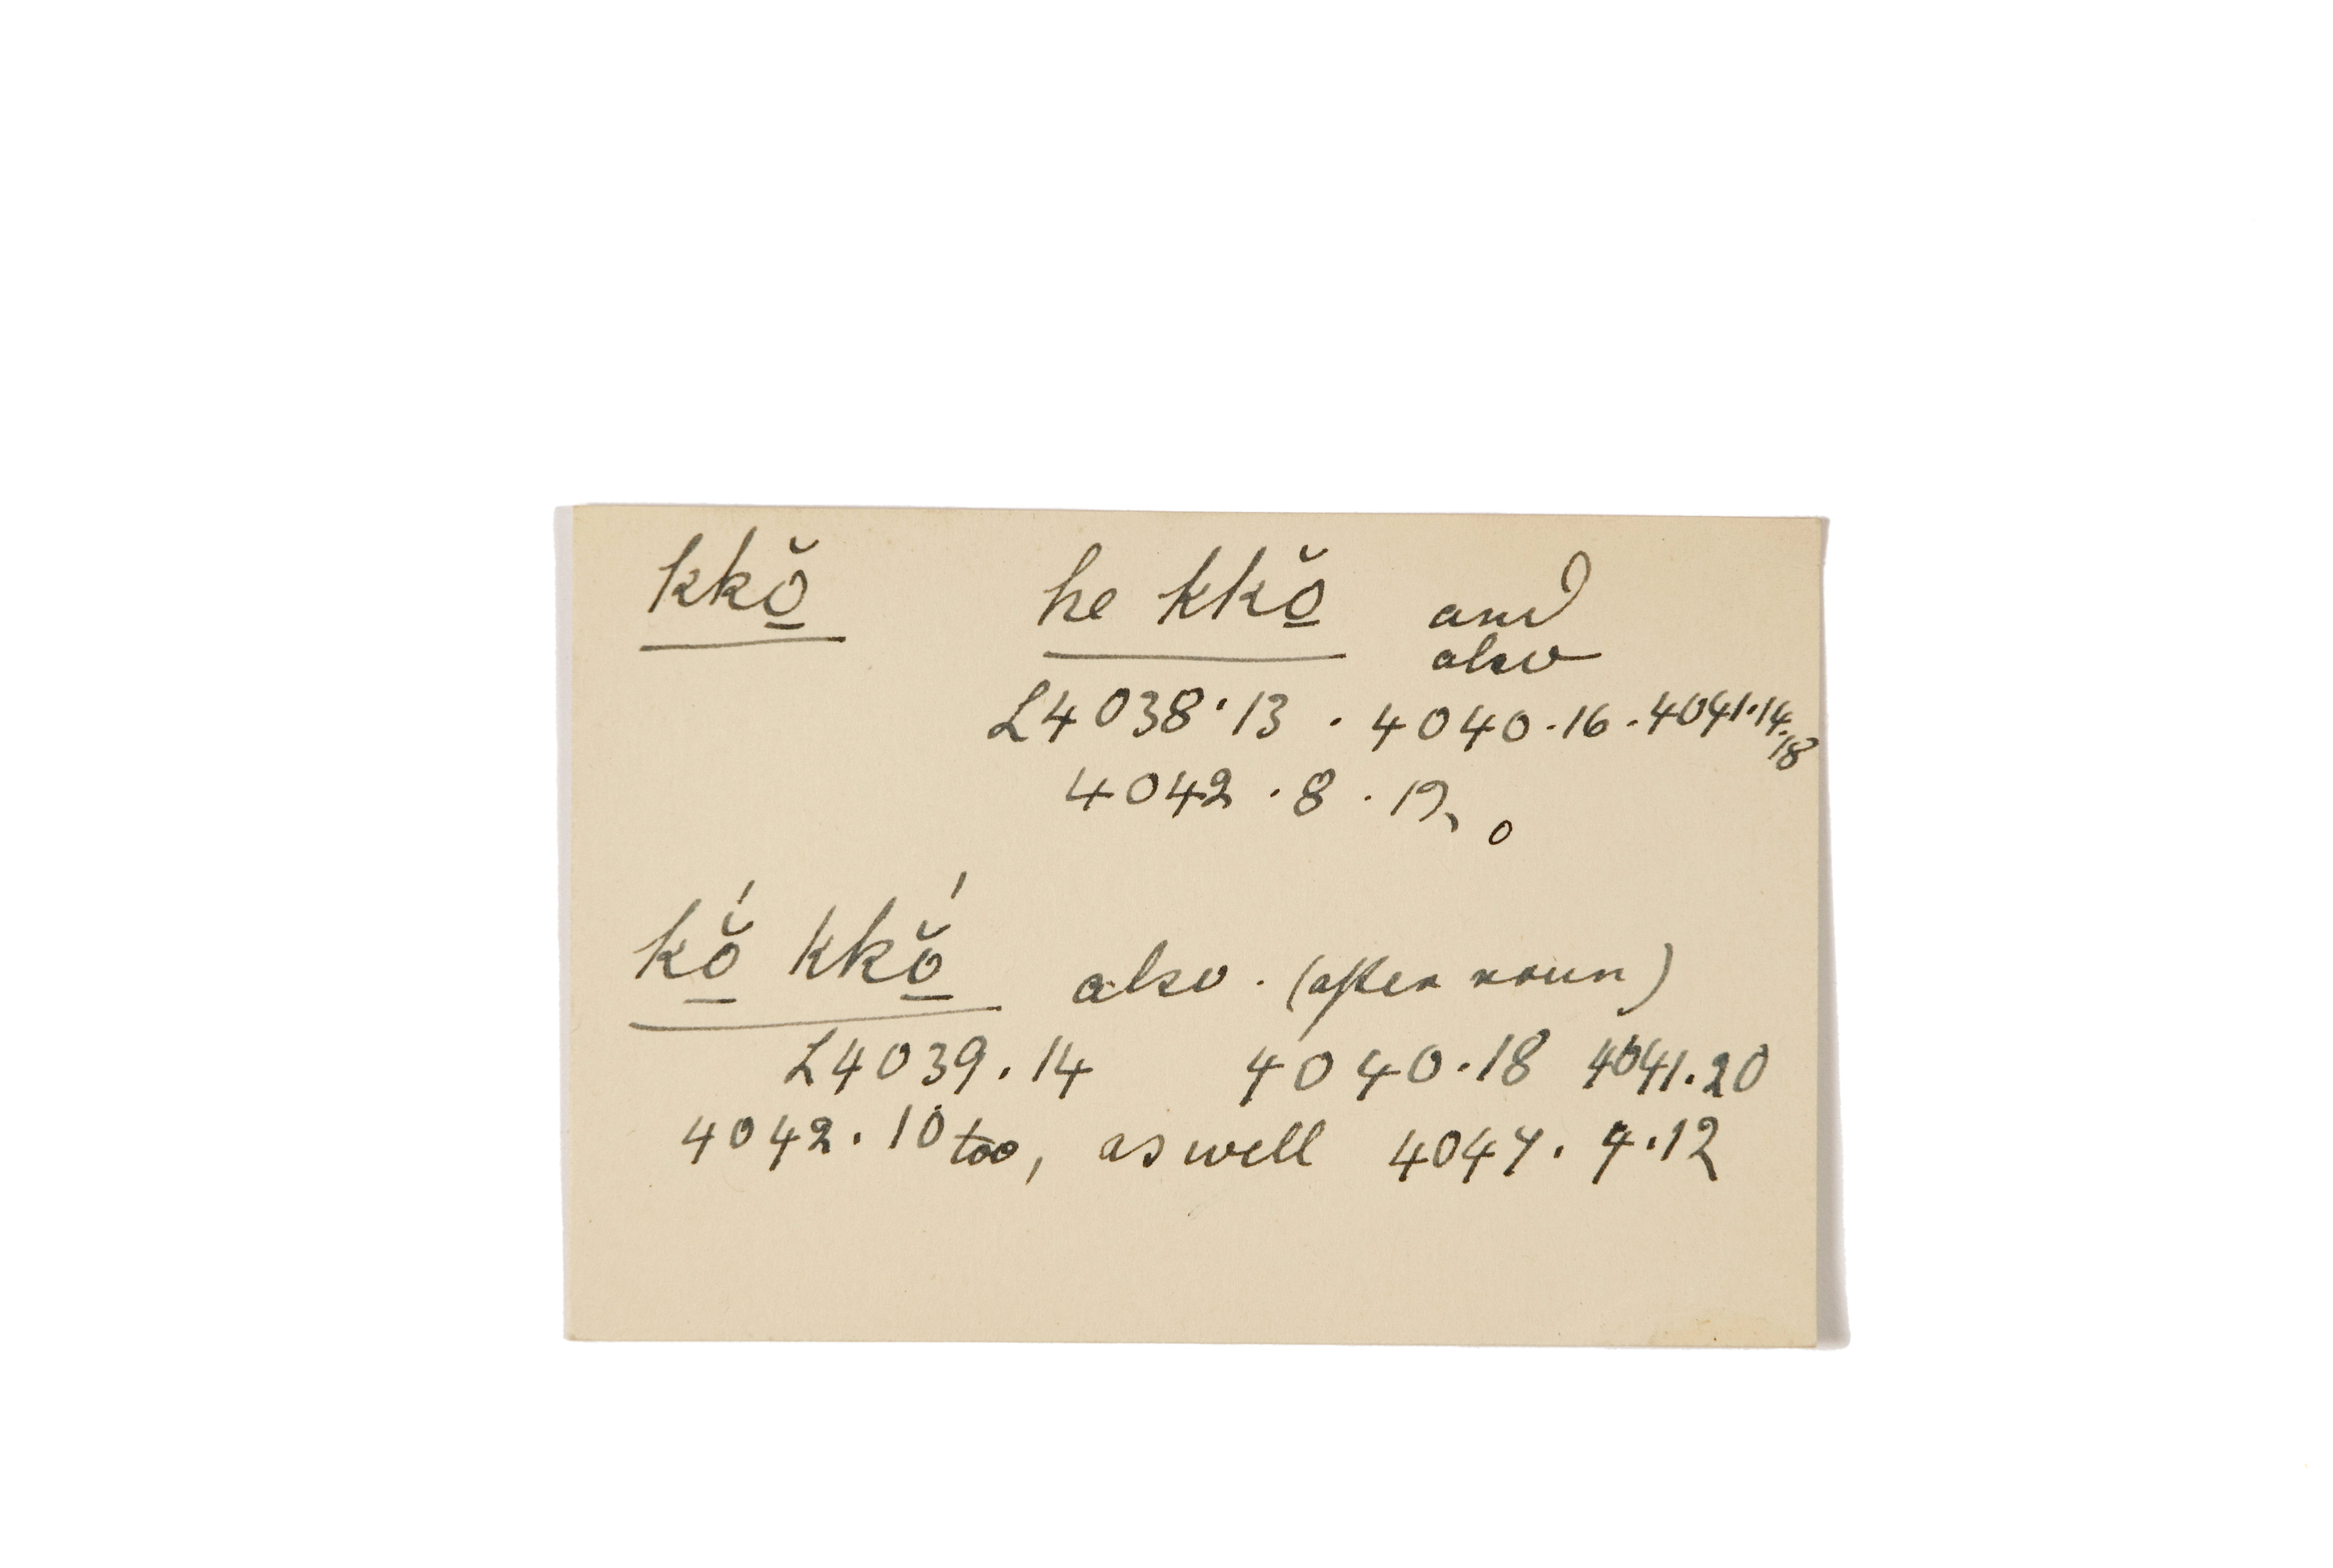 kkŏ̱ he kkŏ̱ and
also
L4038·13 · 4040·16·4041·14.
18
4042·8·19, o
kŏ̱́ kkŏ̱́ also. (after noun)
L4039.14 4040.18 4041.20
4042.10 too, as well 4047. 7.12